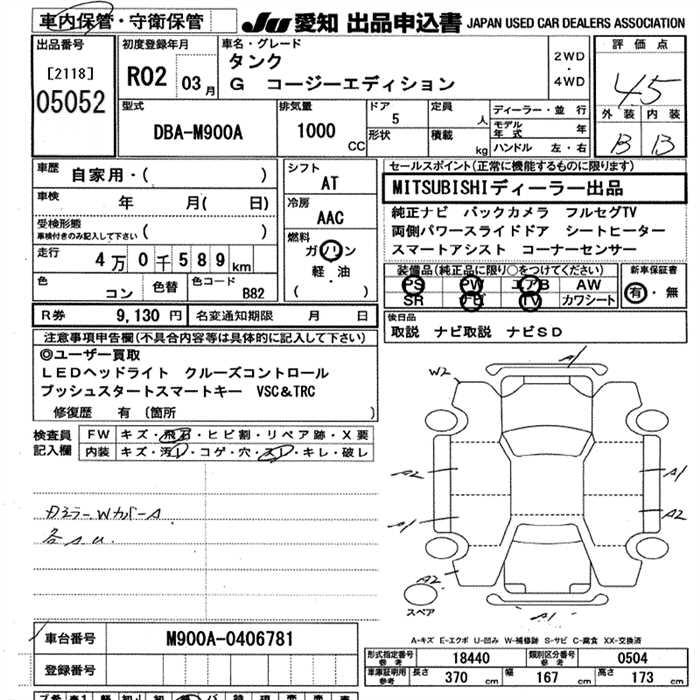 車内保管・守衛保管
JU 愛知 出品申込書 JAPAN USED CAR DEALERS ASSOCIATION
出品番号
[2118]
05052
初度登録年月
R02 03月
車名・グレード
タンク
G コージーエディション
2WD
・
4WD
評価点
4.5
外装 内装
B B
型式
DBA-M900A
排気量
1000 CC
ドア
5
形状
定員
人
積載
kg
ディーラー・並行
モデル年式 年
ハンドル 左・右
車歴
自家用・( )
車検
年 月( 日)
受検形態
車検付きのみ記入して下さい ( )
走行
4万0千589km
色
コン
色替
色コード
B82
シフト
AT
冷房
AAC
燃料
ガソリン
軽・油
( )
セールスポイント(正常に機能するものに限ります)
MITSUBISHIディーラー出品
純正ナビ バックカメラ フルセグTV
両側パワースライドドア シートヒーター
スマートアシスト コーナーセンサー
装備品(純正品に限り○をつけてください)
PS PW エアB AW
SR ナビ TV カワシート
新車保証書
有・無
R券 9,130円 名変通知期限 月 日
後日品
取説 ナビ取説 ナビSD
注意事項申告欄(不具合内容等は具体的に記入して下さい)
◎ユーザー買取
LEDヘッドライト クルーズコントロール
プッシュスタートスマートキー VSC&TRC
修復歴 有 〔箇所 〕
検査員記入欄
FW キズ・飛石・ヒビ割・リペア跡・X要
内装 キズ・汚レ・コゲ・穴・スレ・キレ・破レ
カミラーWカバーA
各A.U.
W2
A1
A2
A1
A1
A2
A2
A1
スペア
A-キズ E-エクボ U-凹み W-補修跡 S-サビ C-腐食 XX-交換済
車台番号
M900A-0406781
登録番号
形式指定番号
参考
18440
類別区分番号
参考
0504
車庫証明用
参考
長さ 370 cm
幅 167 cm
高さ 173 cm